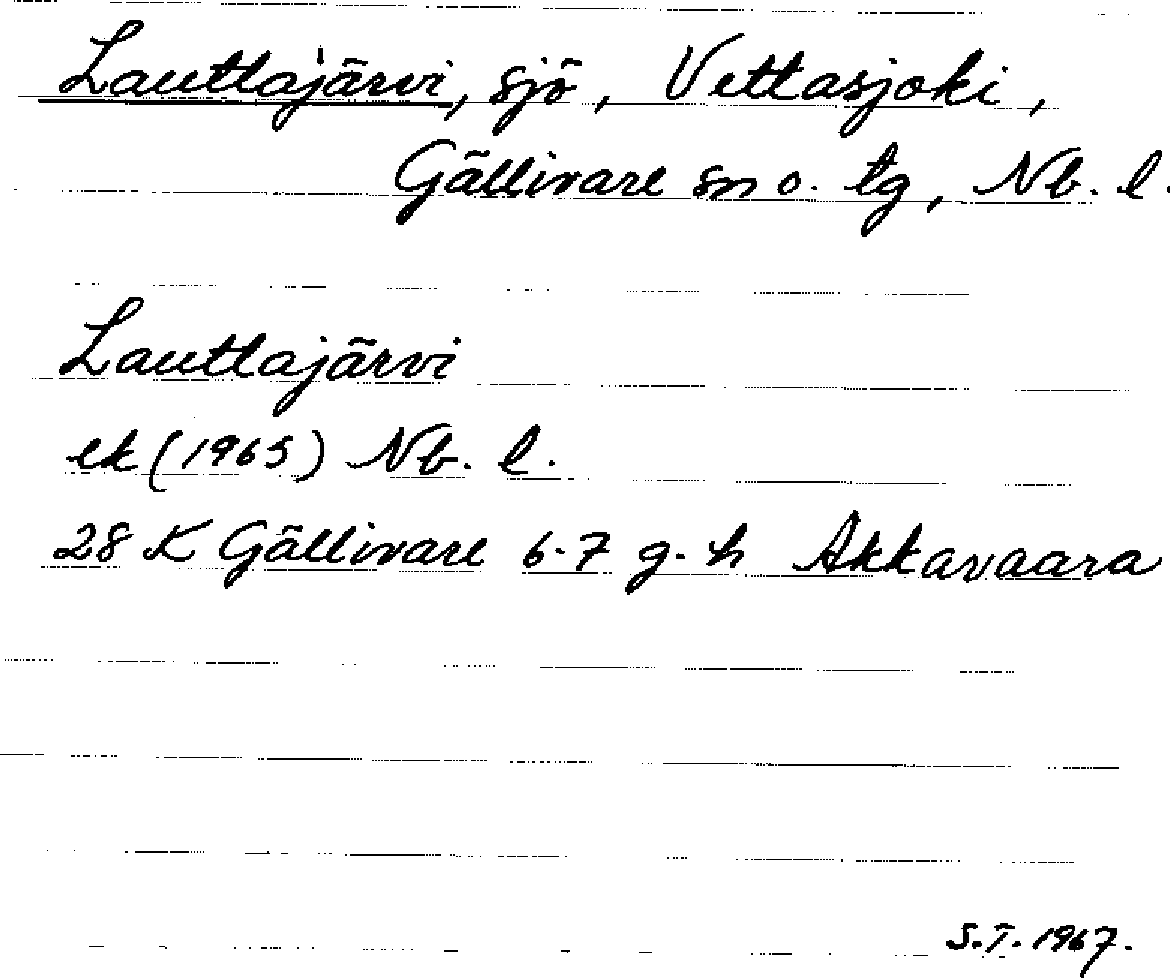 Lauttajärvi, sjö, Vettasjoki,
Gällivare sn o. tg, Nb. l.
Lauttajärvi
ek (1965) Nb. l.
28 K Gällivare 6-7 g-h Akkavaara
S.T. 1967.